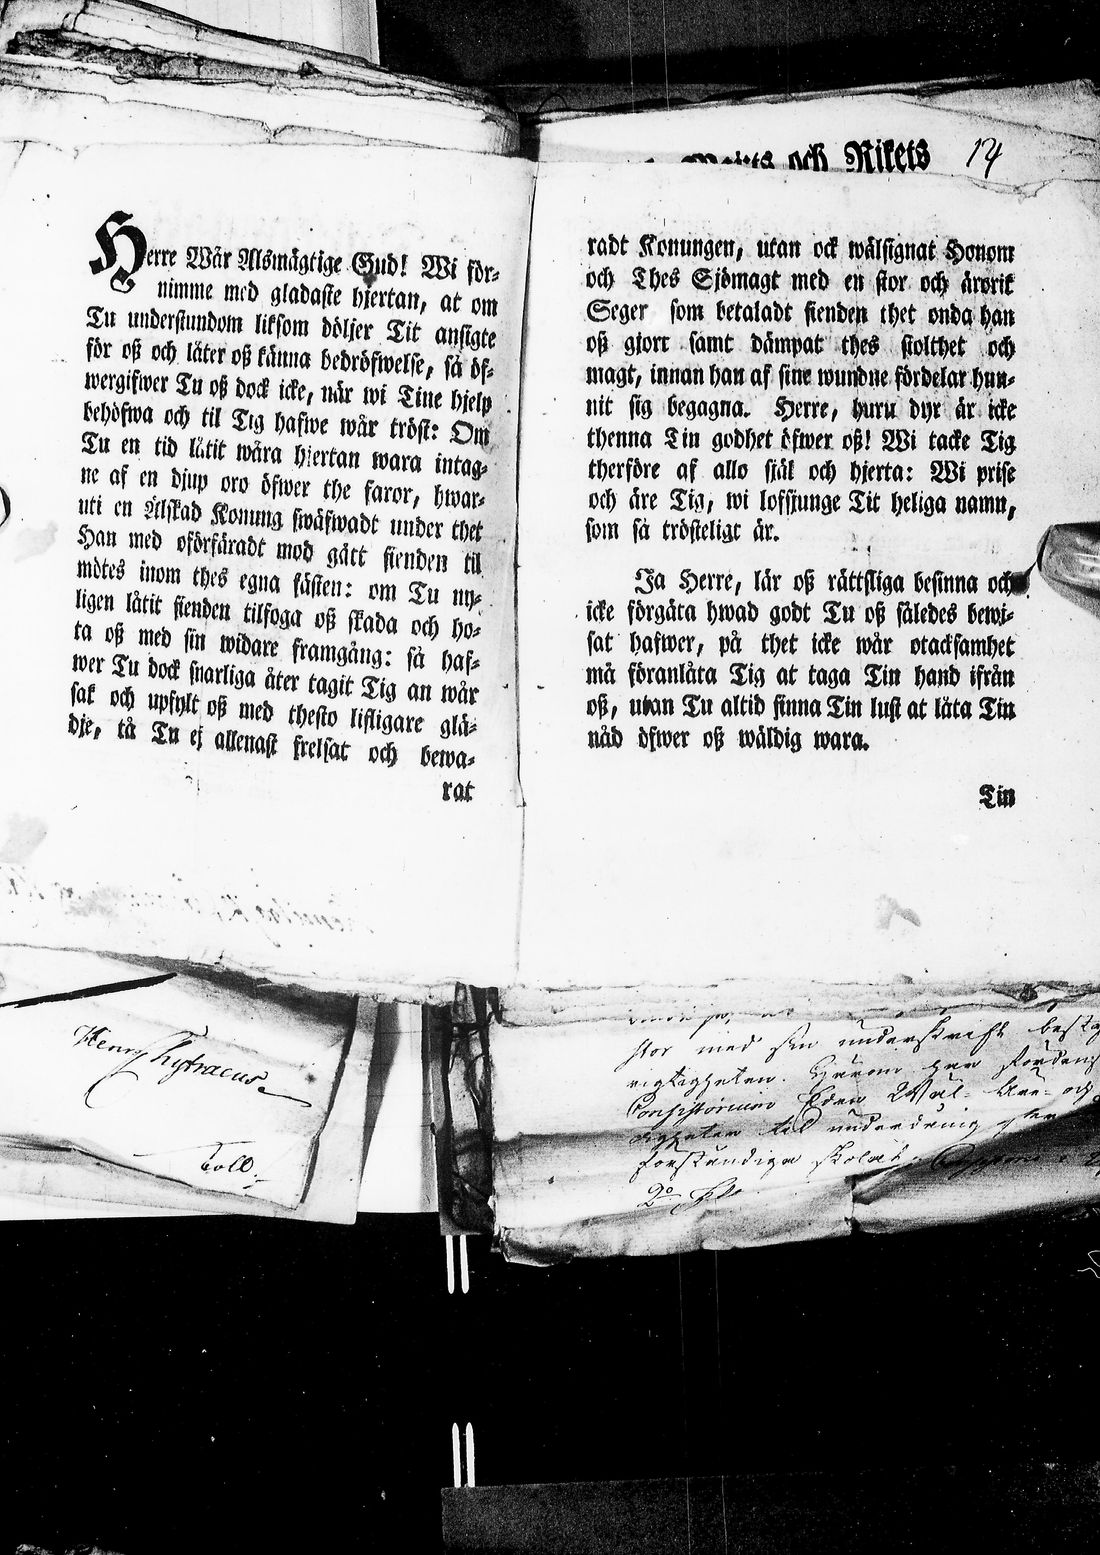 Herre Wår Alsmägtige Gud! Wi för-
nimme med gladaste hjertan, at om
Tu understundom liksom döljer Tit ansigte
för oß och låter oß känna bedröfwelse, så öf-
wergifwer Tu oß dock icke, när wi Tine hjelp
behöfwa och til Tig hafwe wår tröst: Om
Tu en tid låtit wåra hjertan wara intag-
ne af en djup oro öfwer the faror, hwar-
uti en Älskad Konung swäfwadt under thet
Han med oförfäradt mod gått fienden til
mötes inom thes egna fästen: om Tu ny-
ligen låtit fienden tilfoga oß skada och ho-
ta oß med sin widare framgång: så haf-
wer Tu dock snarliga åter tagit Tig an wår
sak och upfylt oß med thesto lifligare glä-
dje, tå Tu ej allenast frelsat och bewa-
rat
och Rikets 14
radt Konungen, utan ock wälsignat Honom
och Thes Sjömagt med en stor och ärorik
Seger som betaladt fienden thet onda han
oß gjort samt dämpat thes stolthet och
magt, innan han af sine wundne fördelar hun-
nit sig begagna. Herre, huru dyr är icke
thenna Tin godhet öfwer oß! Wi tacke Tig
therföre af allo siäl och hjerta: Wi prise
och äre Tig, wi lofsjunge Tit heliga namn,
som så trösteligt är.
Ja Herre, lär oß rättsliga besinna och
icke förgäta hwad godt Tu oß således bewi-
sat hafwer, på thet icke wår otacksamhet
må föranlåta Tig at taga Tin hand ifrån
oß, utan Tu altid finna Tin lust at låta Tin
nåd öfwer oß wäldig wara.
Tin
Henr Chytraeus
Coll.
stor med sin underskrift
rigtigheten.
Consistorium Wäl-
til